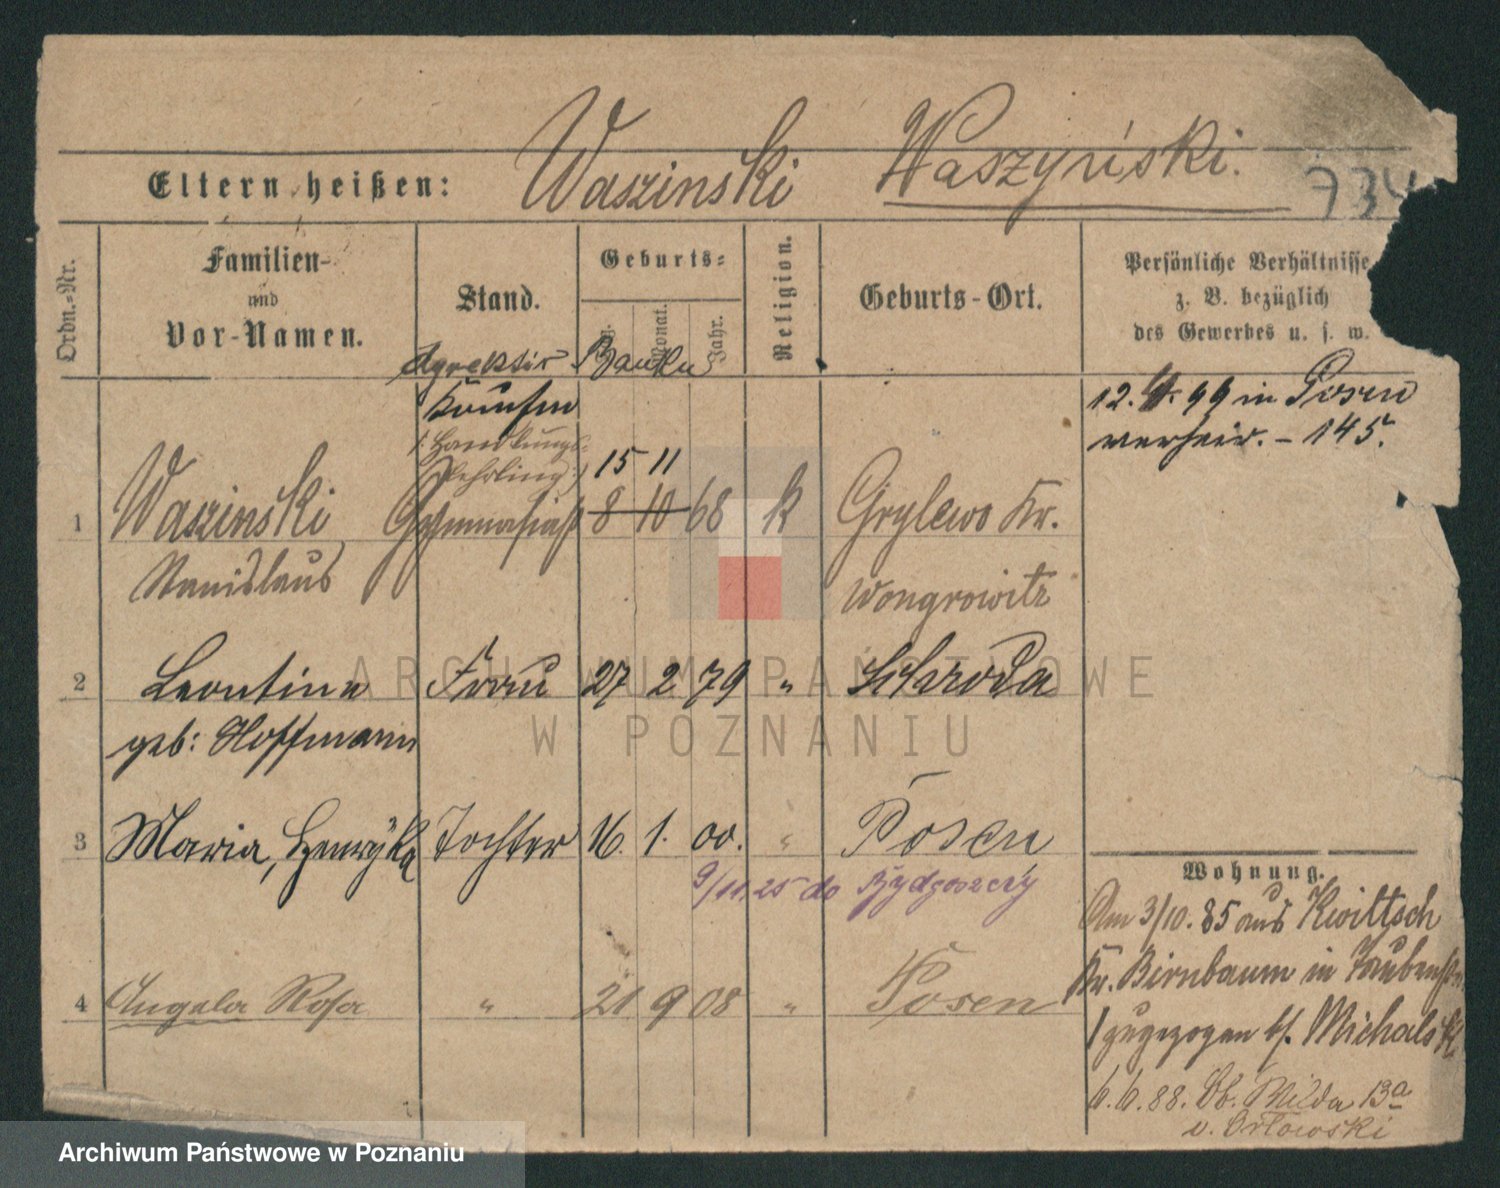 Waszinski Waszyński.
734
Eltern heißen:
Ordn.-Nr.
Familien-
und
Vor-Namen.
Stand.
Geburts-
Tag.
Monat.
Jahr.
Religion.
Geburts-Ort.
Persönliche Verhältnisse
z. B. bezüglich
des Gewerbes u. s. w.
Dyrektor Banku
Kaufm
(Handlungs-
Lehrling)
12. 99 in Posen
verheir. - 145.
15 11
1 Waszinski Gymnasiast 8 10 68 k Grylewo Kr.
Stanislaus Wongrowitz
2 Leontine Frau 27 2 79 " Schroda
geb: Hoffmann
3 Maria, Henryka Tochter 16. 1. 00. " Posen
9/11.25 do Bydgoszczy
4 Angela Rosa " 21 9 08 " Posen
Wohnung.
Am 3/10. 85 aus Kwiltsch
Kr. Birnbaum in
zugezogen bei Michalski
6.6.88. Ob. Wilda 13a
v. Orlowski
ARCHIWUM PAŃSTWOWE
W POZNANIU
Archiwum Państwowe w Poznaniu